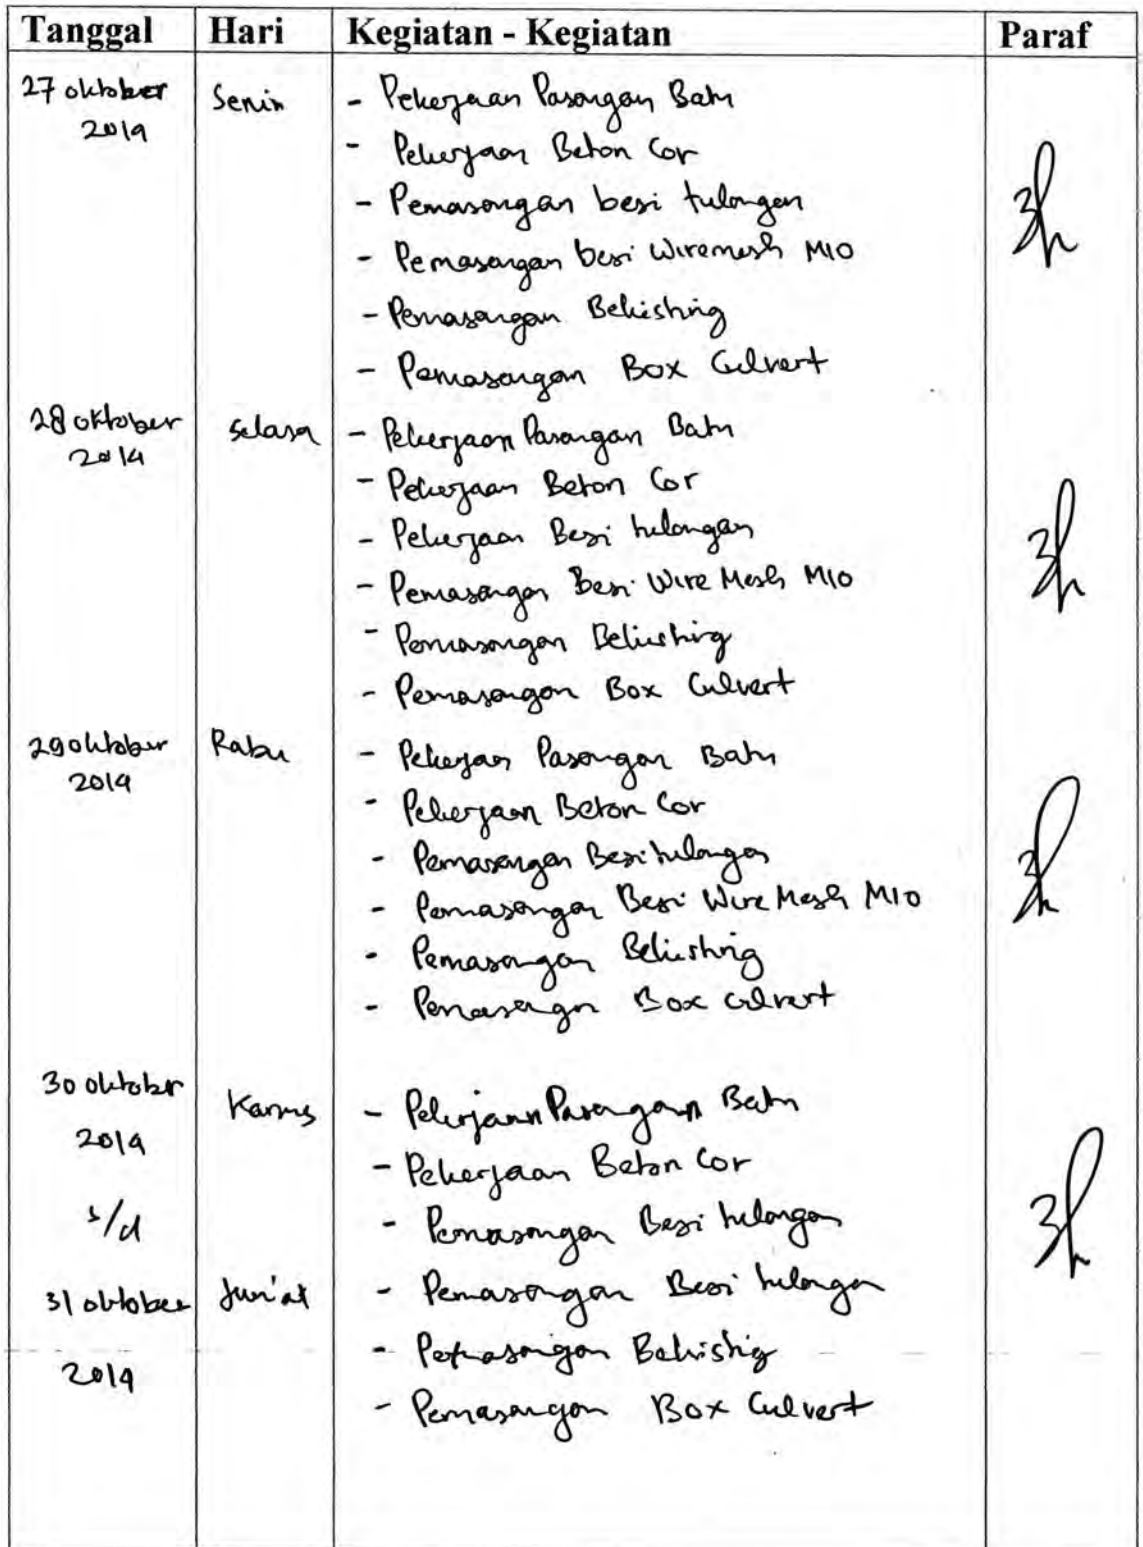 Tanggal Hari Kegiatan - Kegiatan Paraf
27 oktober Senin - Pekerjaan Pasangan Batu
2014
- Pekerjaan Beton Cor
- Pemasangan besi tulangan
- Pemasangan besi Wiremesh M10
- Pemasangan Bekishting
- Pemasangan Box Culvert
28 oktober Selasa - Pekerjaan Pasangan Batu
2014
- Pekerjaan Beton Cor
- Pekerjaan Besi tulangan
- Pemasangan Besi Wire Mesh M10
- Pemasangan Bekishting
- Pemasangan Box Culvert
29 oktober Rabu - Pekerjaan Pasangan Batu
2014
- Pekerjaan Beton Cor
- Pemasangan Besi tulangan
- Pemasangan Besi Wire Mesh M10
- Pemasangan Bekishting
- Pemasangan Box culvert
30 oktober Kamis - Pekerjaan Pasangan Batu
2014 - Pekerjaan Beton Cor
s/d - Pemasangan Besi tulangan
31 oktober Jum'at - Pemasangan Besi tulangan
- Pemasangan Bekisting
2014
- Pemasangan Box Culvert